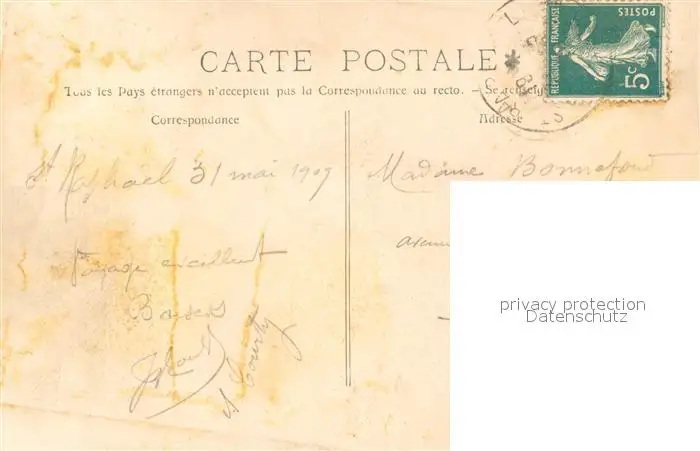 CARTE POSTALE
Tous les Pays étrangers n'acceptent pas la Correspondance au recto. — Se renseigner
Correspondance
Adresse
RÉPUBLIQUE FRANÇAISE
POSTES
5c
St Raphaël 31 mai 1909
Voyage excellent
Baisers
Madame Bonnafoud
privacy protection
Datenschutz